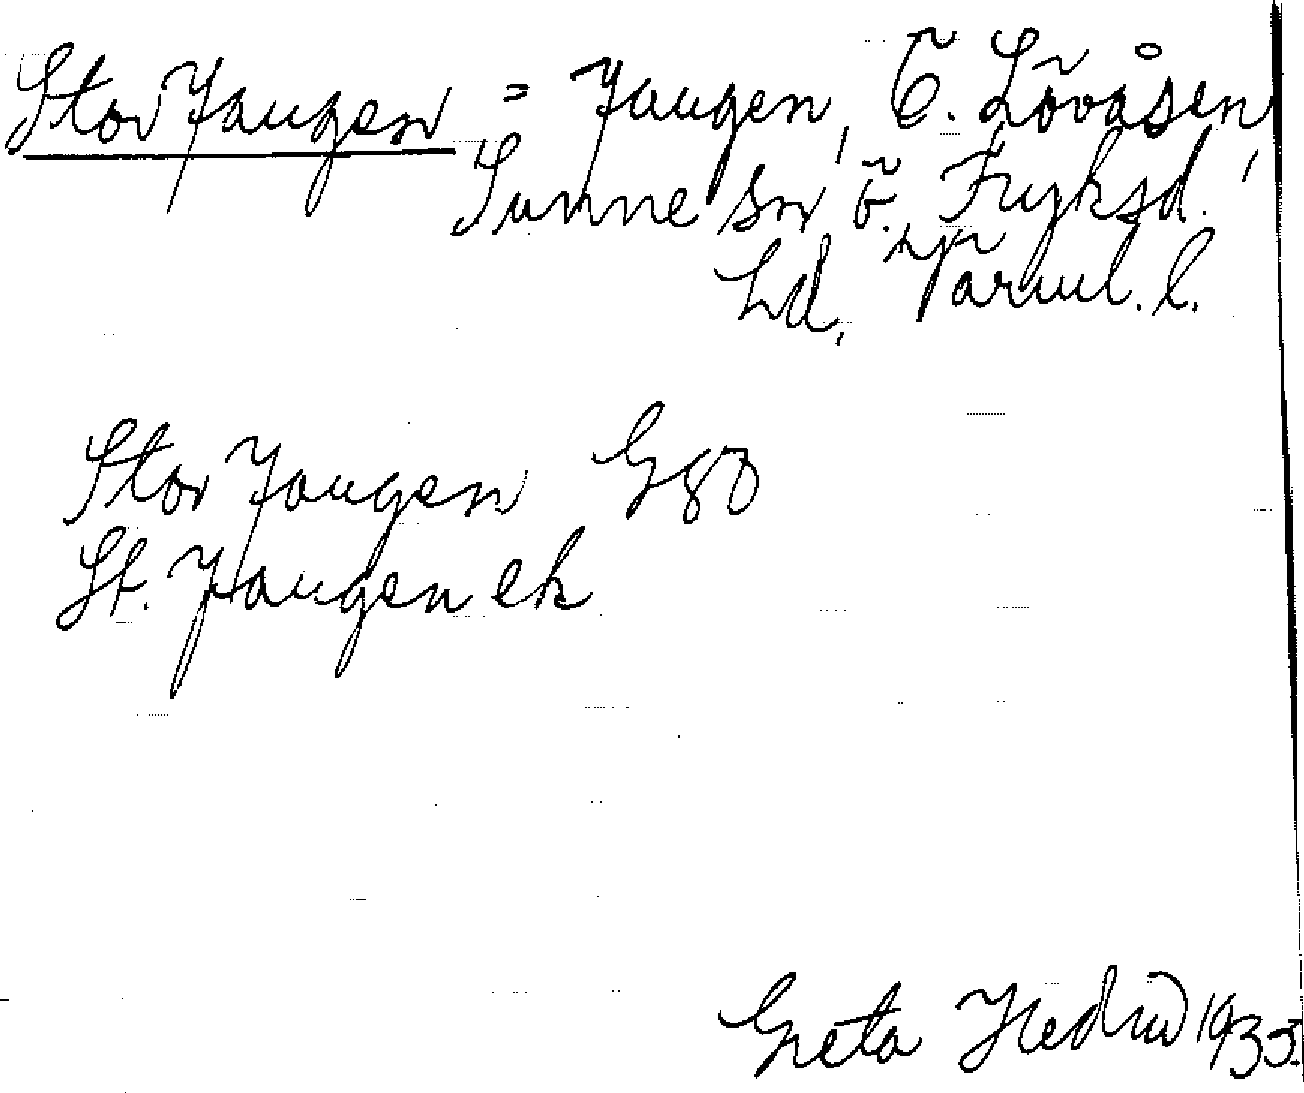 Stor Jangen = Jangen, Ö. Lövåsen,
Sunne sn Ö. Fryksd.
hd, Värml. l.
Stor Jangen G80
St. Jangen ek
Greta Hedin 1935.